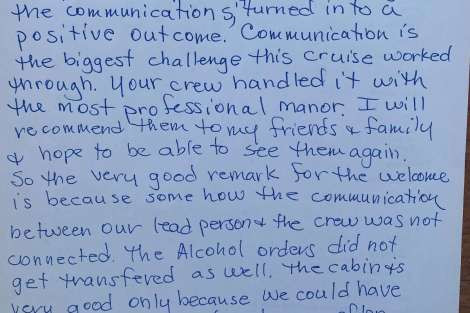 the communications, turned in to a
positive outcome. Communication is
the biggest challenge this cruise worked
through. Your crew handled it with
the most professional manor. I will
recommend them to my friends & family
& hope to be able to see them again.
So the very good remark for the welcome
is because some how the communication
between our lead person & the crew was not
connected. The Alcohol orders did not
get transfered as well. The cabin is
very good only because we could have